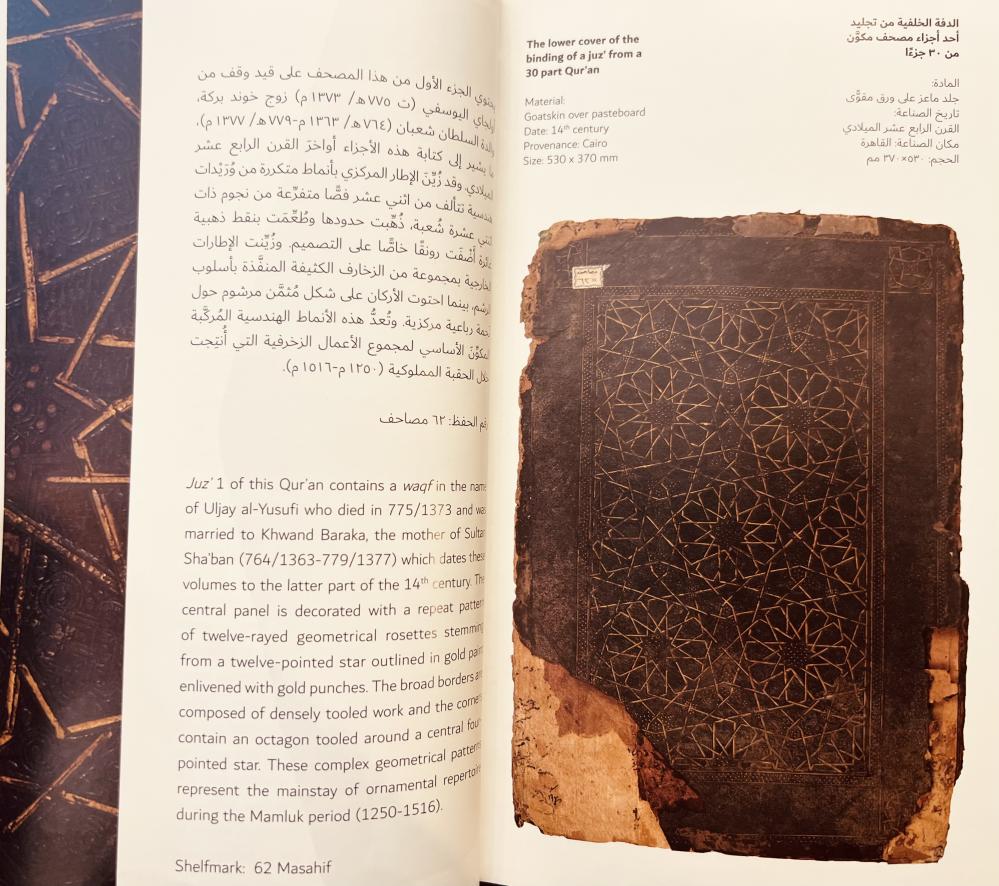 يحتوي الجزء الأول من هذا المصحف على قيد وقف من
أولجاي اليوسفي (ت ٧٧٥هـ/ ١٣٧٣م) زوج خوند بركة،
والدة السلطان شعبان (٧٦٤هـ/ ١٣٦٣م-٧٧٩هـ/ ١٣٧٧م)،
ما يشير إلى كتابة هذه الأجزاء أواخرَ القرن الرابع عشر
الميلادي. وقد زُيِّنَ الإطار المركزي بأنماط متكررة من وُرَيْدات
هندسية تتألف من اثني عشر فصًّا متفرِّعة من نجوم ذات
اثنتي عشرة شُعبة، ذُهِّبت حدودها وطُعِّمَت بنقط ذهبية
غائرة أَضْفَت رونقًا خاصًّا على التصميم. وزُيِّنت الإطارات
الخارجية بمجموعة من الزخارف الكثيفة المنفَّذة بأسلوب
الرشم، بينما احتوت الأركان على شكل مُثمَّن مرشوم حول
نجمة رباعية مركزية. وتُعدُّ هذه الأنماط الهندسية المُركَّبة
المكوِّنَ الأساسي لمجموع الأعمال الزخرفية التي أُنتِجت
خلال الحقبة المملوكية (١٢٥٠م-١٥١٦م).
رقم الحفظ: ٦٢ مصاحف
Juz' 1 of this Qur'an contains a waqf in the name
of Uljay al-Yusufi who died in 775/1373 and was
married to Khwand Baraka, the mother of Sultan
Sha'ban (764/1363-779/1377) which dates these
volumes to the latter part of the 14th century. The
central panel is decorated with a repeat pattern
of twelve-rayed geometrical rosettes stemming
from a twelve-pointed star outlined in gold paint
enlivened with gold punches. The broad borders are
composed of densely tooled work and the corners
contain an octagon tooled around a central four-
pointed star. These complex geometrical patterns
represent the mainstay of ornamental repertoire
during the Mamluk period (1250-1516).
Shelfmark: 62 Masahif
The lower cover of the
binding of a juz' from a
30 part Qur'an
Material:
Goatskin over pasteboard
Date: 14th century
Provenance: Cairo
Size: 530 x 370 mm
الدفة الخلفية من تجليد
أحد أجزاء مصحف مكوَّن
من ٣٠ جزءًا
المادة:
جلد ماعز على ورق مقوَّى
تاريخ الصناعة:
القرن الرابع عشر الميلادي
مكان الصناعة: القاهرة
الحجم: ٥٣٠×٣٧٠ مم